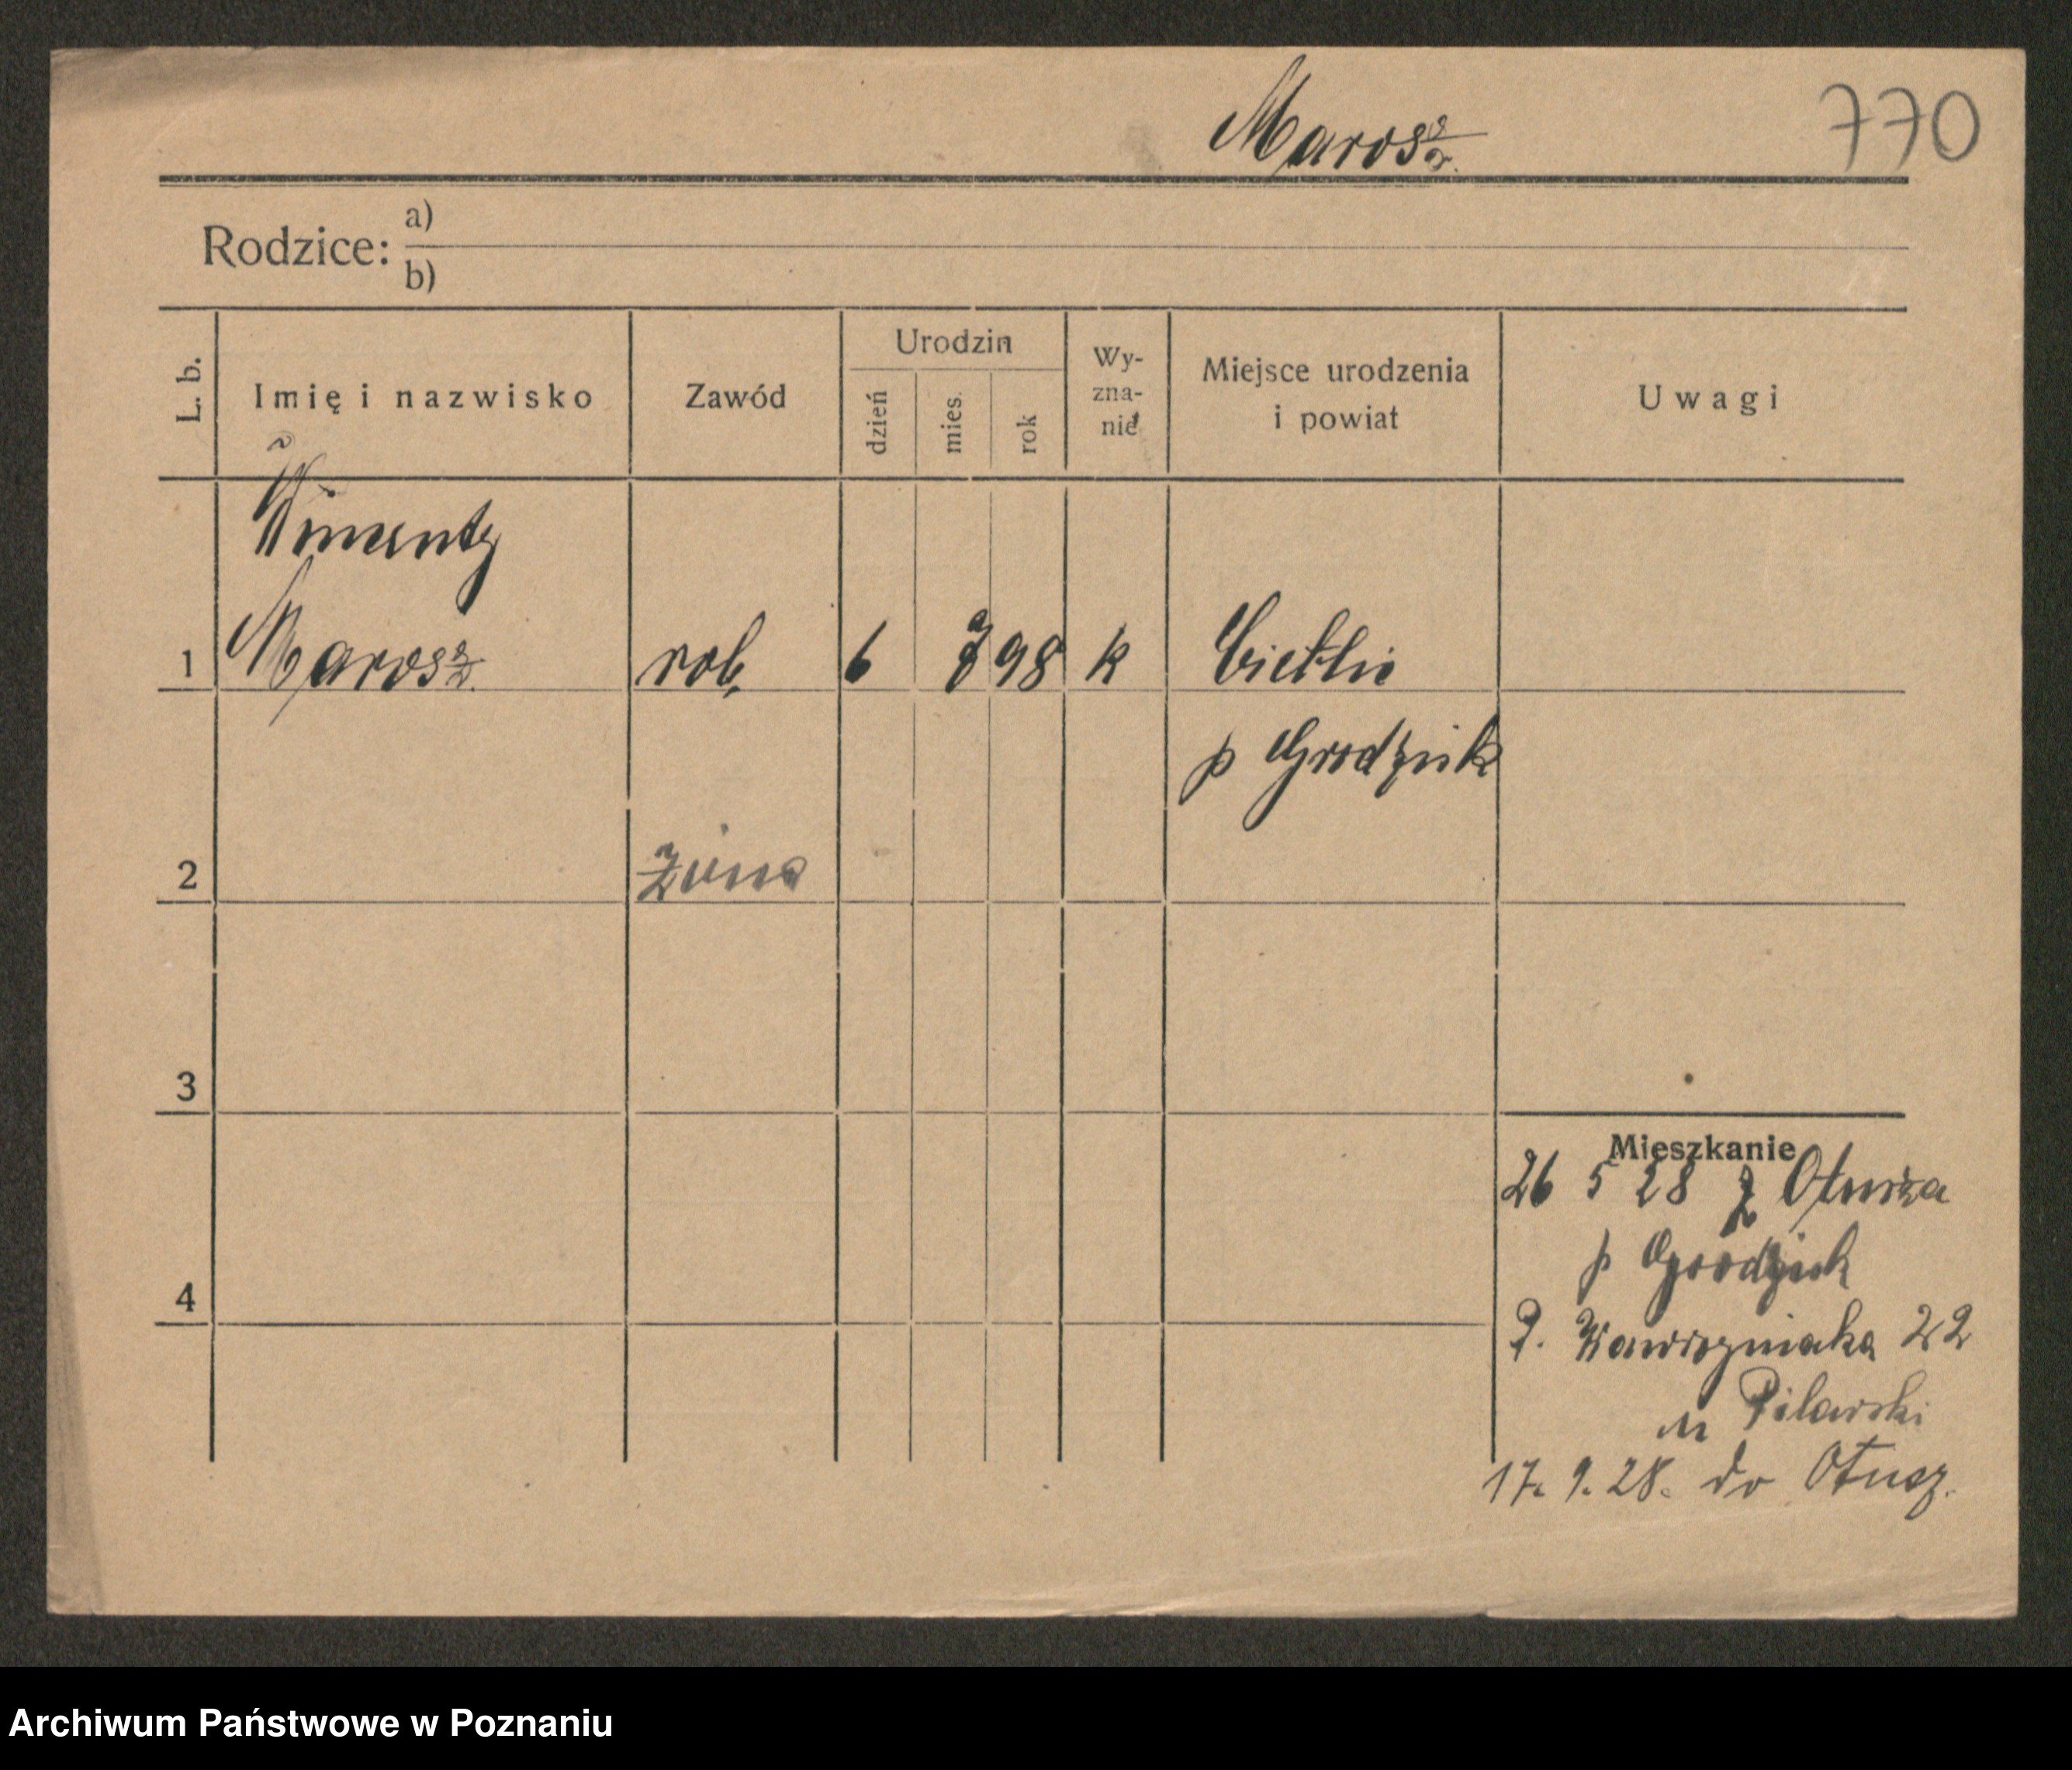 Marosz. 770
Rodzice: a)
b)
L. b. Imię i nazwisko Zawód Urodzin dzień mies. rok Wy-zna-nie Miejsce urodzenia i powiat Uwagi
Marosz. rob. 6 7 98 k
1
p Grodzisk
2
3
Mieszkanie
26 5 28 z Otusza
p Grodzisk
4
P. Wawrzyniaka 22
Pilarski
17. 9. 28. do Otusz.
Archiwum Państwowe w Poznaniu